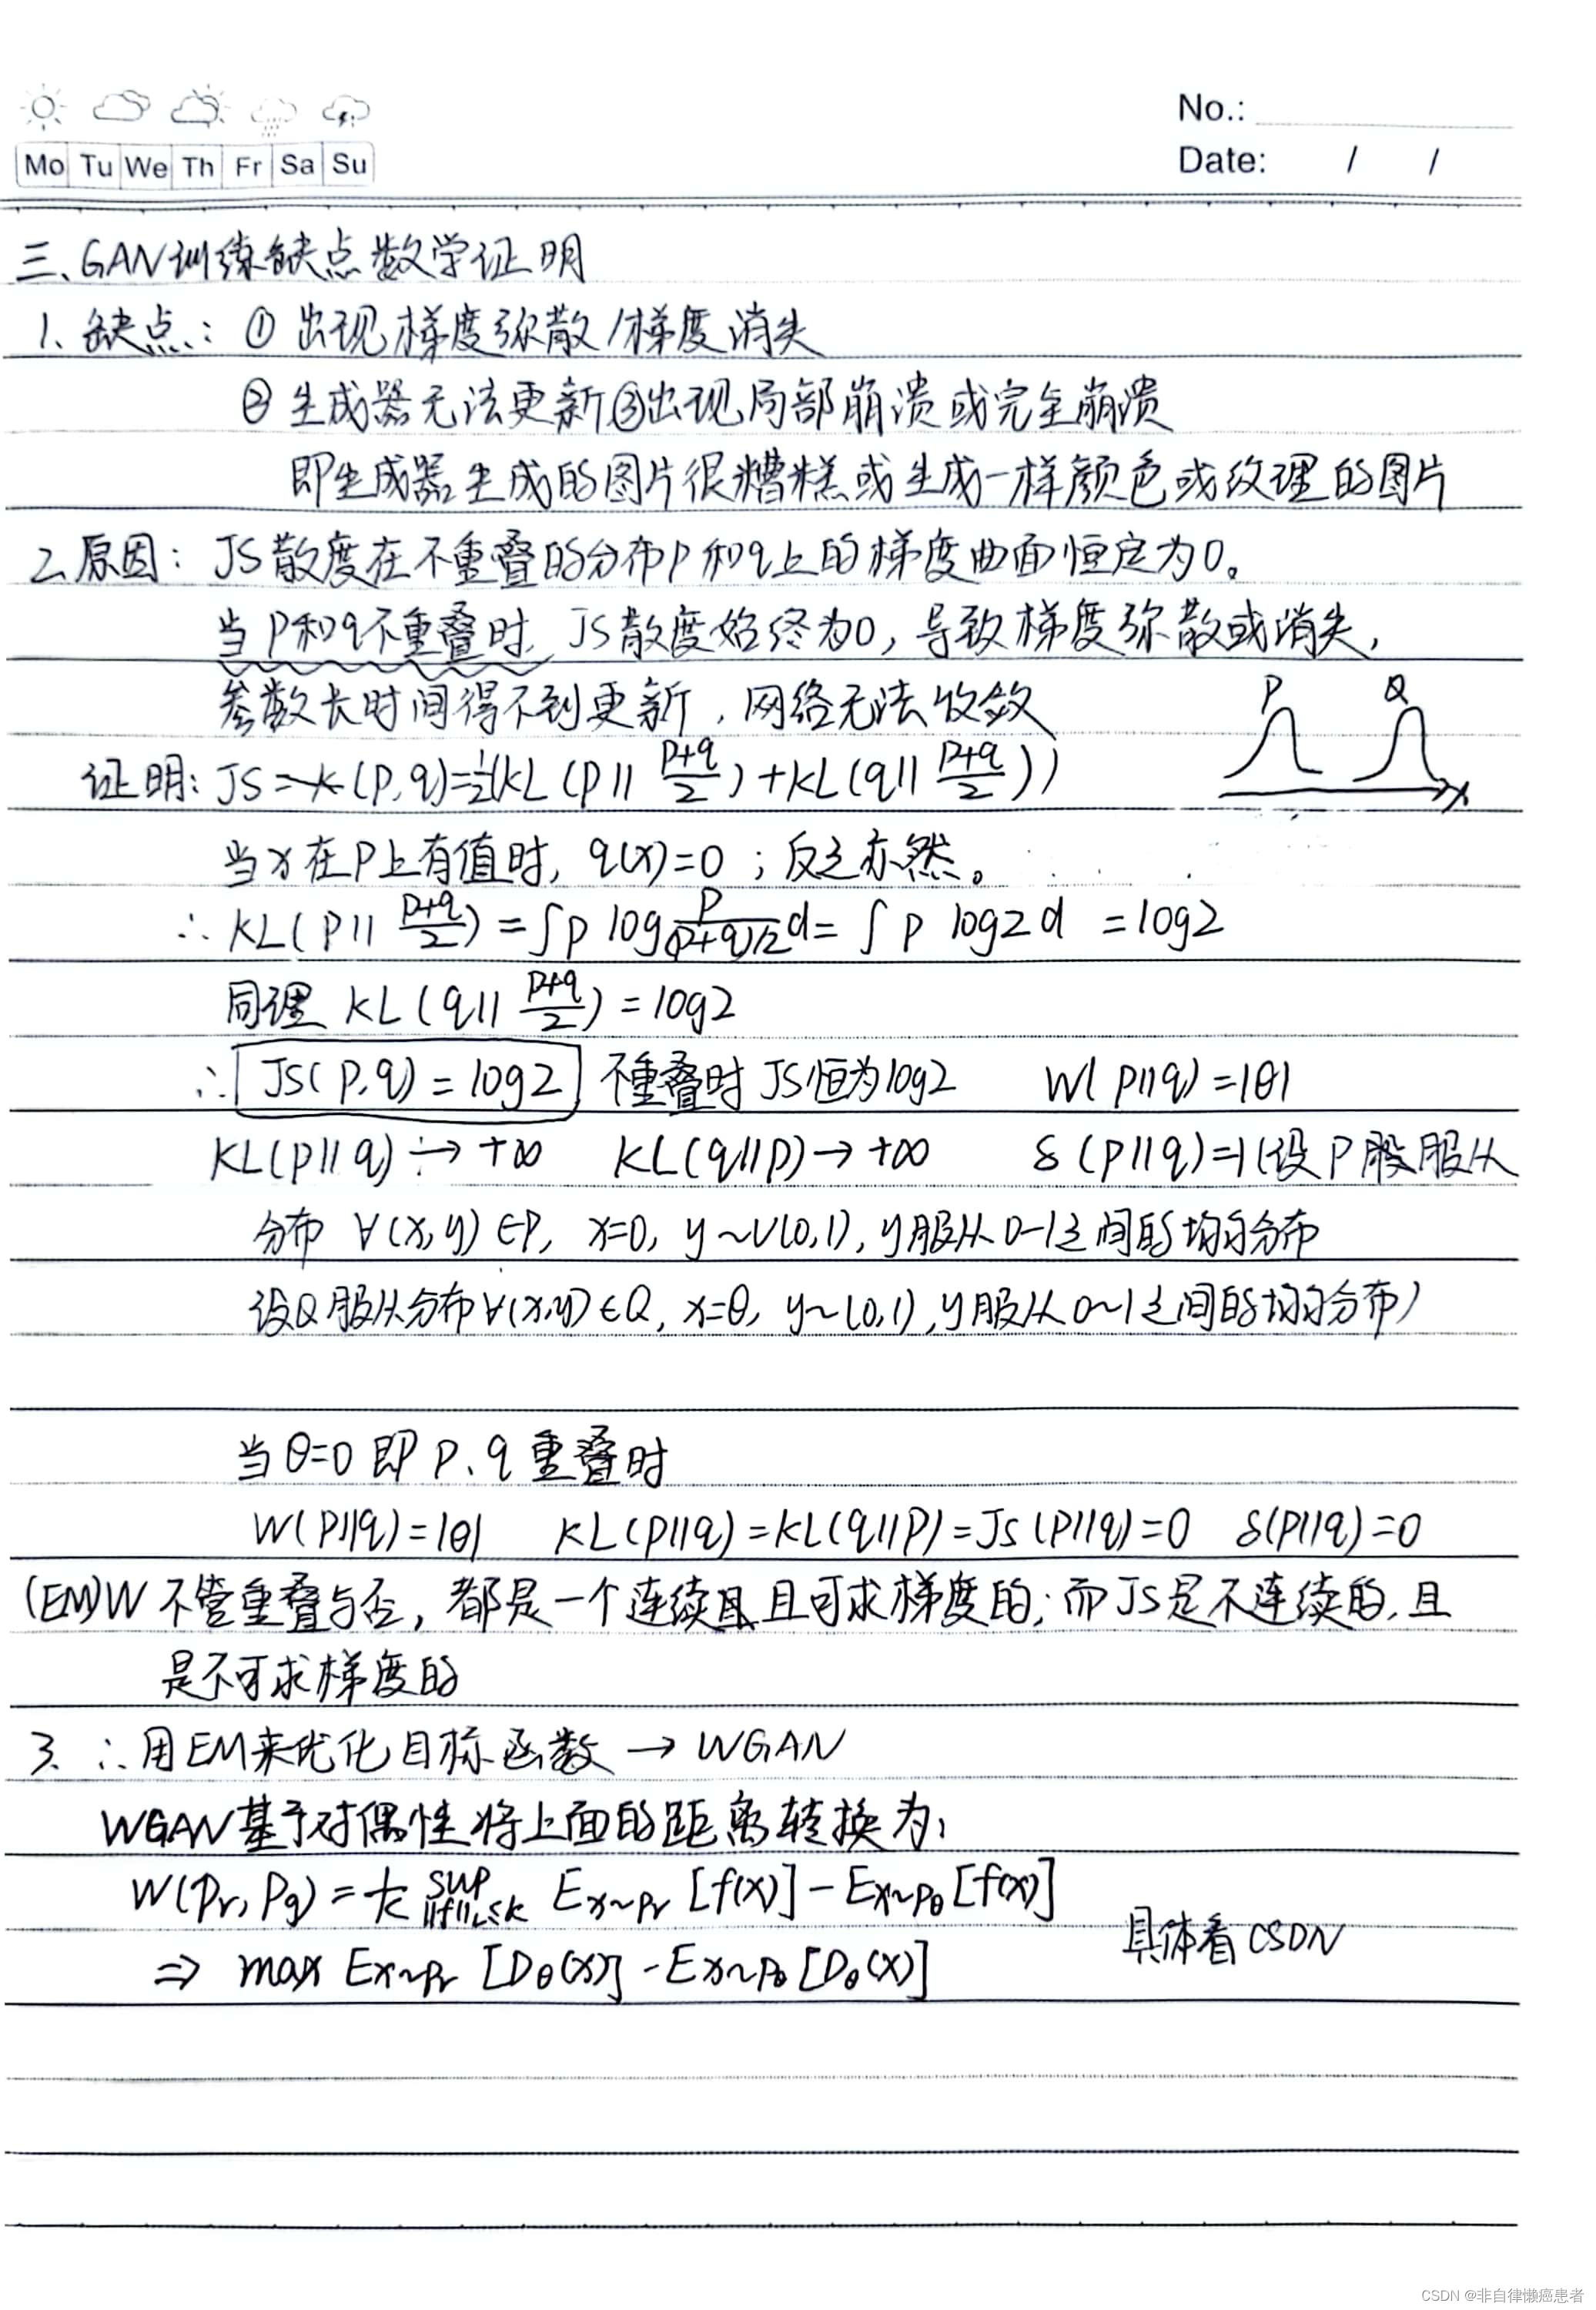 No.:
Mo Tu We Th Fr Sa Su
Date: / /
三、GAN训练缺点数学证明
1、缺点：① 出现梯度弥散/梯度消失
② 生成器无法更新③出现局部崩溃或完全崩溃
即生成器生成的图片很糟糕或生成一样颜色或纹理的图片
2、原因：JS散度在不重叠的分布P和q上的梯度曲面恒定为0。
当P和q不重叠时，JS散度始终为0，导致梯度弥散或消失，
参数长时间得不到更新，网络无法收敛
P Q
x
证明：JS=(P,q)=½(KL(P||(P+q)/2)+KL(q||(P+q)/2))
当x在P上有值时，q(x)=0；反之亦然。
∴ KL(P||(P+q)/2)=∫p log p/((p+q)/2) d=∫p log2 d =log2
同理 KL(q||(p+q)/2)=log2
∴ JS(P,q)=log2 不重叠时JS恒为log2 W(P||q)=|θ|
KL(P||q)→+∞ KL(q||P)→+∞ δ(P||q)=1(设P服服从
分布 ∀(x,y)∈P, x=0, y~U(0,1), y服从0-1之间的均匀分布
设Q服从分布∀(x,y)∈Q, x=θ, y~(0,1), y服从0~1之间的均匀分布)
当θ=0 即P、q重叠时
W(P||q)=|θ| KL(P||q)=KL(q||P)=JS(P||q)=0 δ(P||q)=0
(EM)W 不管重叠与否，都是一个连续且且可求梯度的；而JS是不连续的，且
是不可求梯度的
3、∴用EM来优化目标函数→WGAN
WGAN基于对偶性将上面的距离转换为：
W(Pr,Pg)=1/k sup ||f||L≤k Ex~Pr[f(x)]-Ex~Pθ[f(x)]
具体看CSDN
⇒ max Ex~Pr[Dθ(x)]-Ex~Pθ[Dθ(x)]
CSDN @非自律懒癌患者